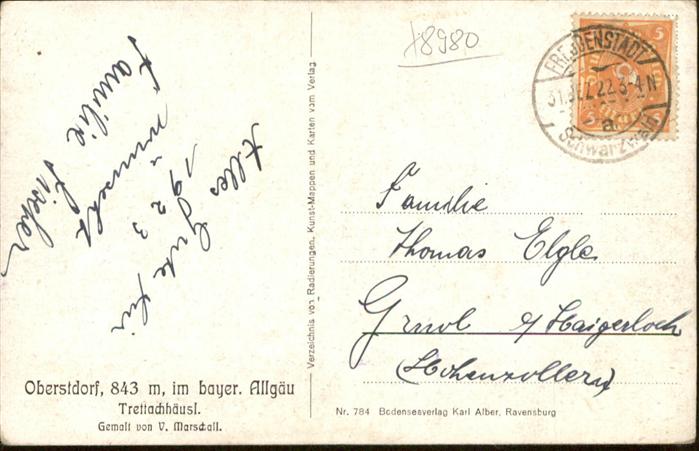 18980
FREUDENSTADT
31.DEZ.22.3-4N
a
Schwarzwald
5
5
Alles Gute für
1923
wünscht
Familie Fischer
Familie
Thomas Elgle
Gruol b/Haigerloch
(Hohenzollern)
Verzeichnis von Radierungen, Kunst-Mappen und Karten vom Verlag
Oberstdorf, 843 m, im bayer. Allgäu
Trettachhäusl.
Gemalt von V. Marschall.
Nr. 784 Bodenseeverlag Karl Alber, Ravensburg